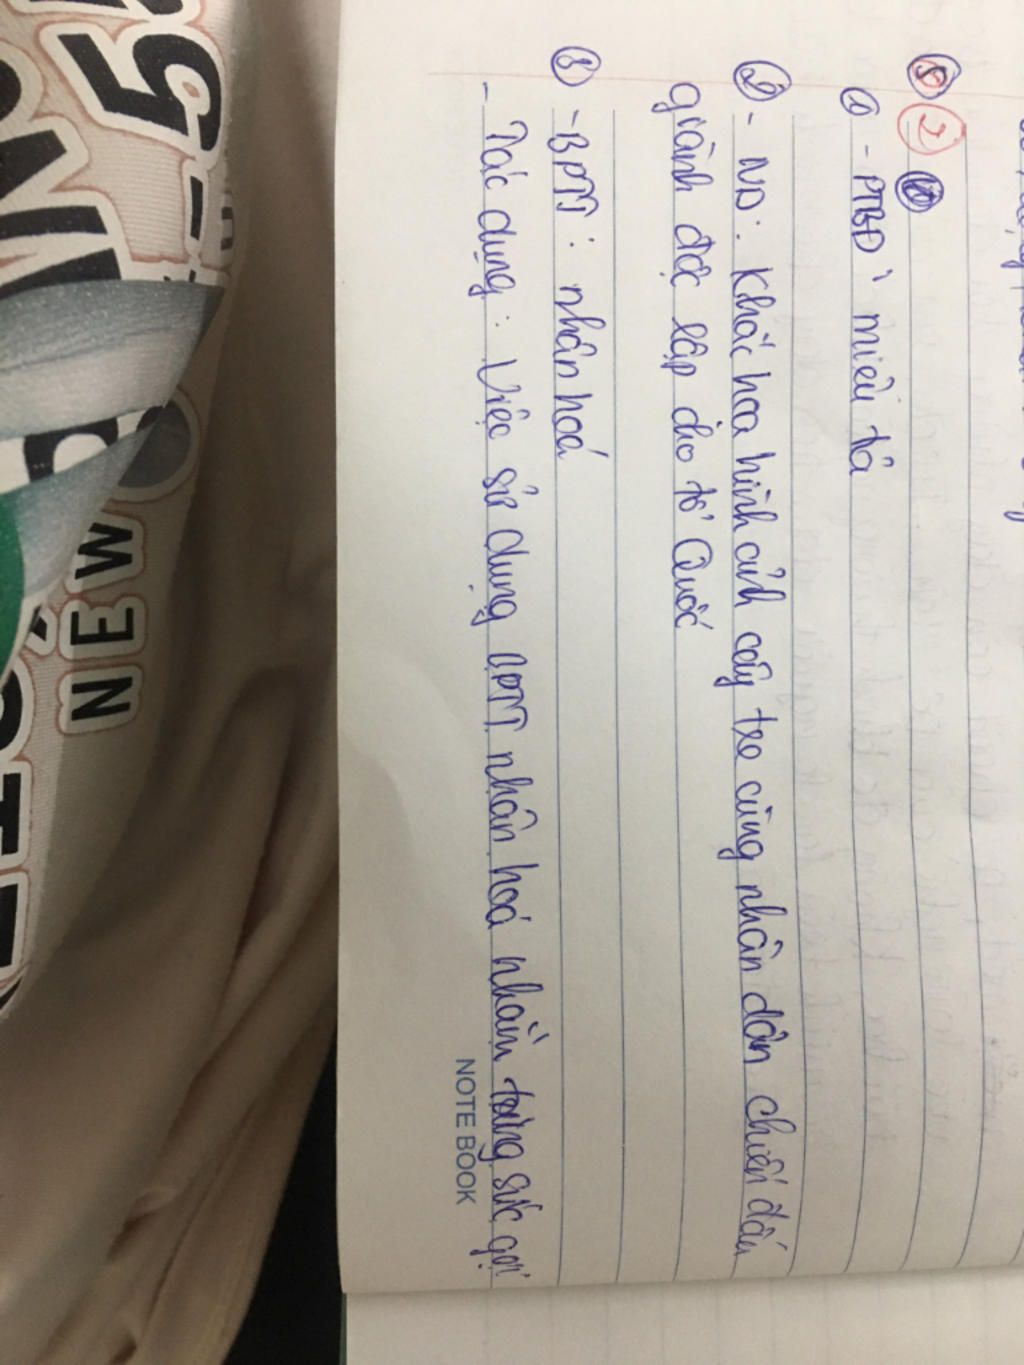 ⑤ ②
① - PTBĐ: miêu tả
② - ND: Khắc hoạ hình ảnh cây tre cùng nhân dân chiến đấu
giành độc lập cho tổ Quốc
③ - BPTT: nhân hoá
- Tác dụng: Việc sử dụng BPTT nhân hoá nhằm tăng sức gợi
NOTE BOOK
NEW